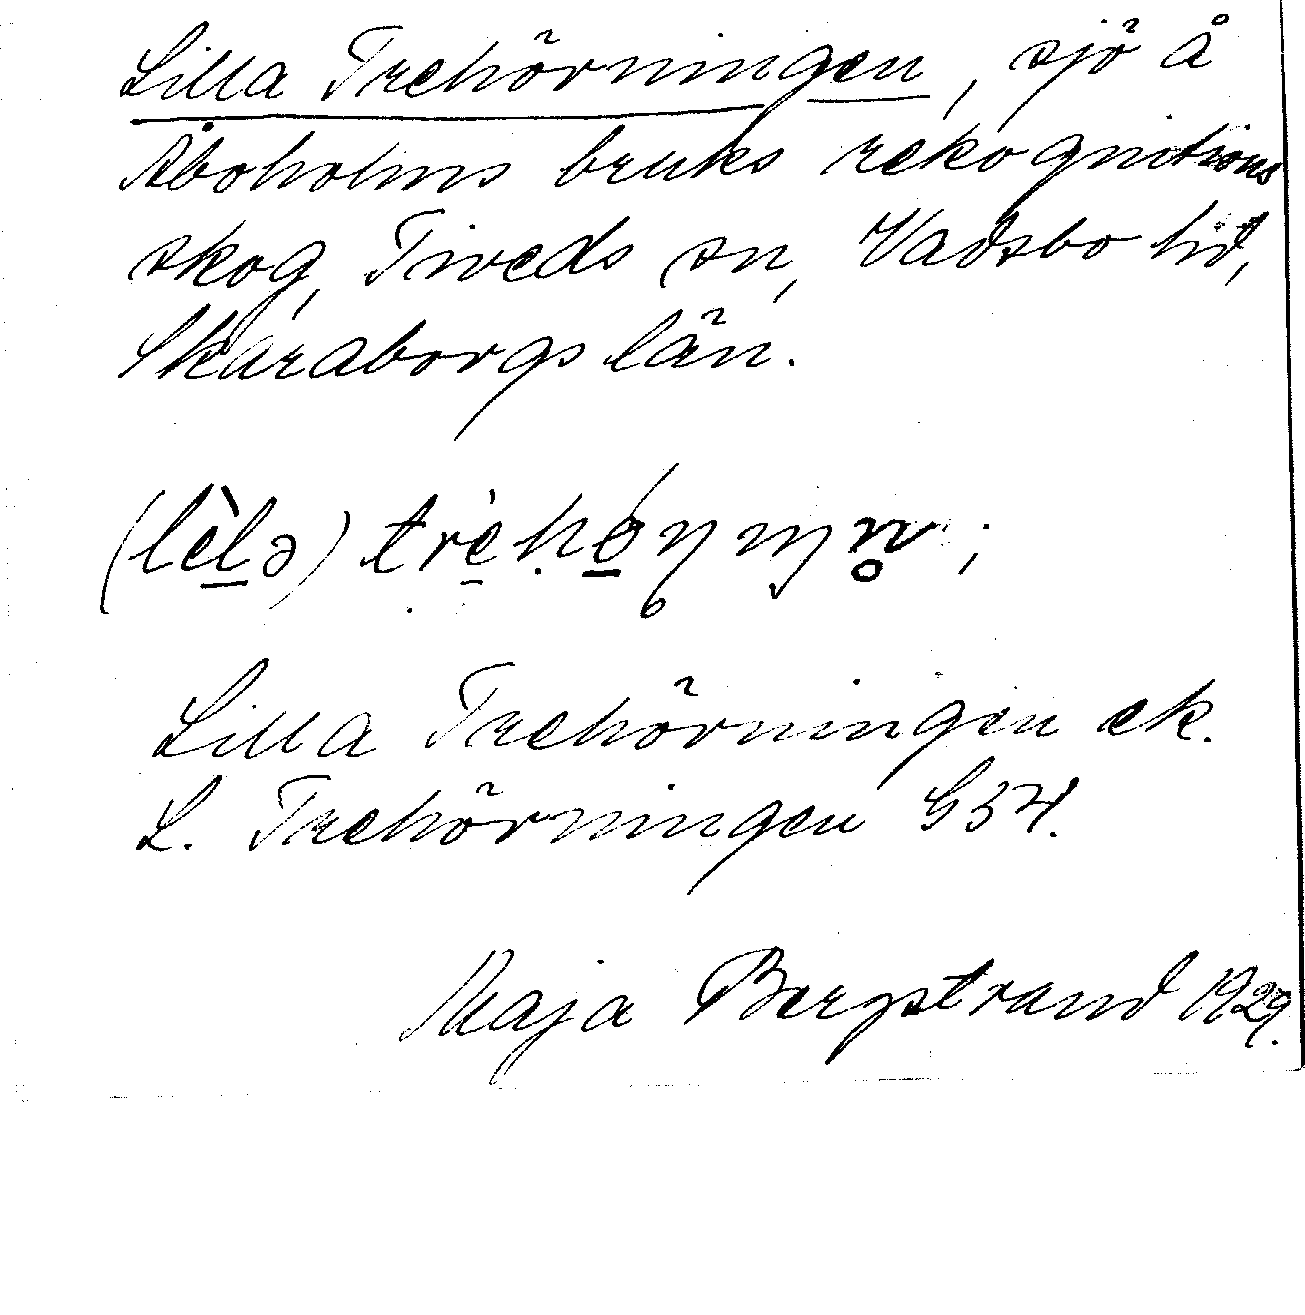 Lilla Trehörningen, sjö å
Åboholms bruks rekognitions
skog, Tiveds sn, Vadsbo hd,
Skaraborgs län.
Lilla Trehörningen ek.
L. Trehörningen G 54.
Maja Bergstrand 1929.